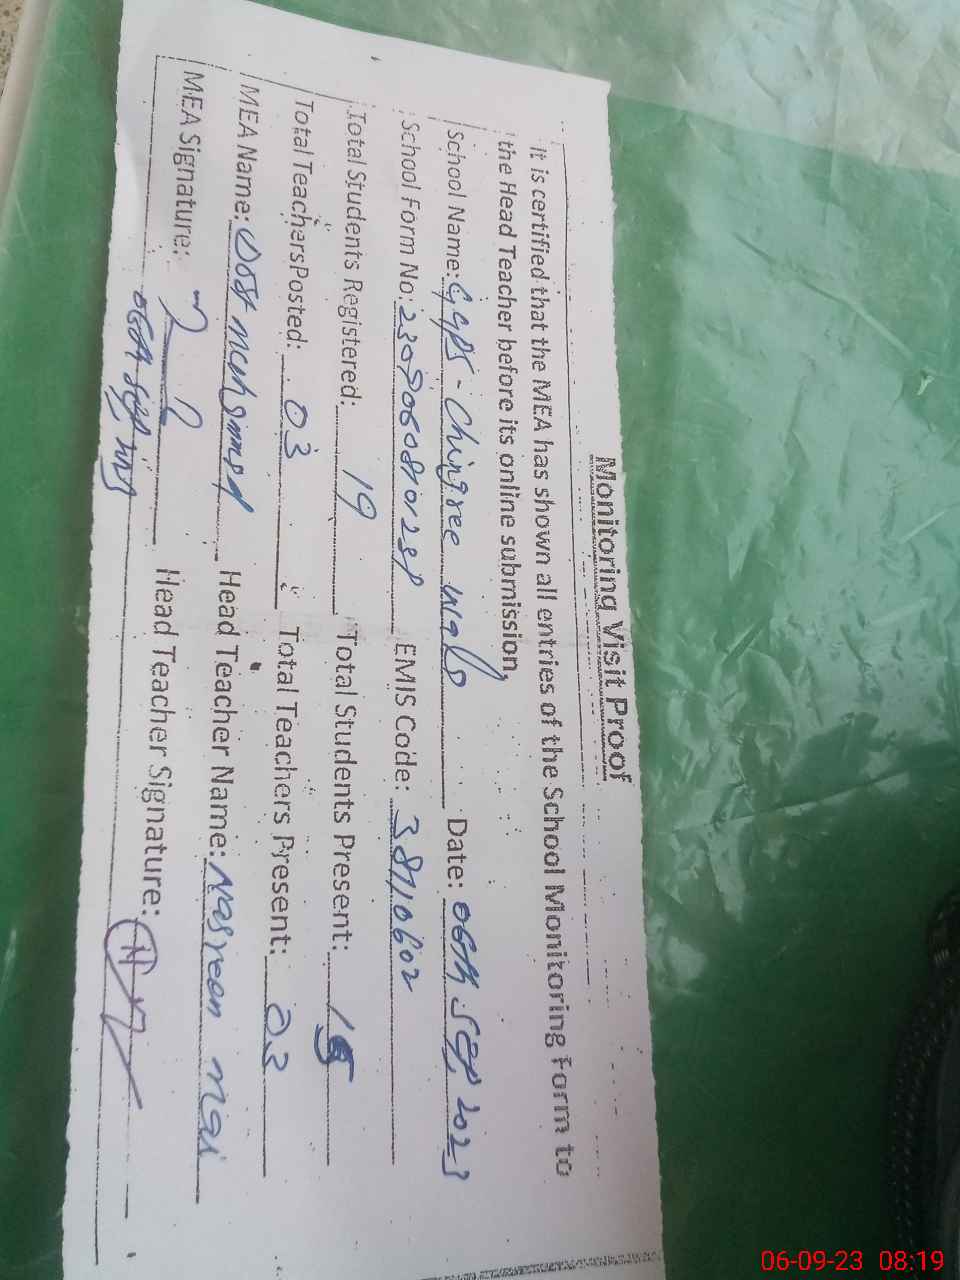 Monitoring Visit Proof
it is certified that the MEA has shown all entries of the School Monitoring Form to
the Head Teacher before its online submission,
School Name: GGPS - Chingree Date: 06th Sep 2023
School Form No: EMIS Code: 38710602
Total Students Registered: 19 Total Students Present: 15
Total Teachers Posted: 03 Total Teachers Present: 03
MEA Name: Dost Muhammad Head Teacher Name: Nasreen Mai
MEA Signature: Head Teacher Signature:
06th Sep
06-09-23 08:19